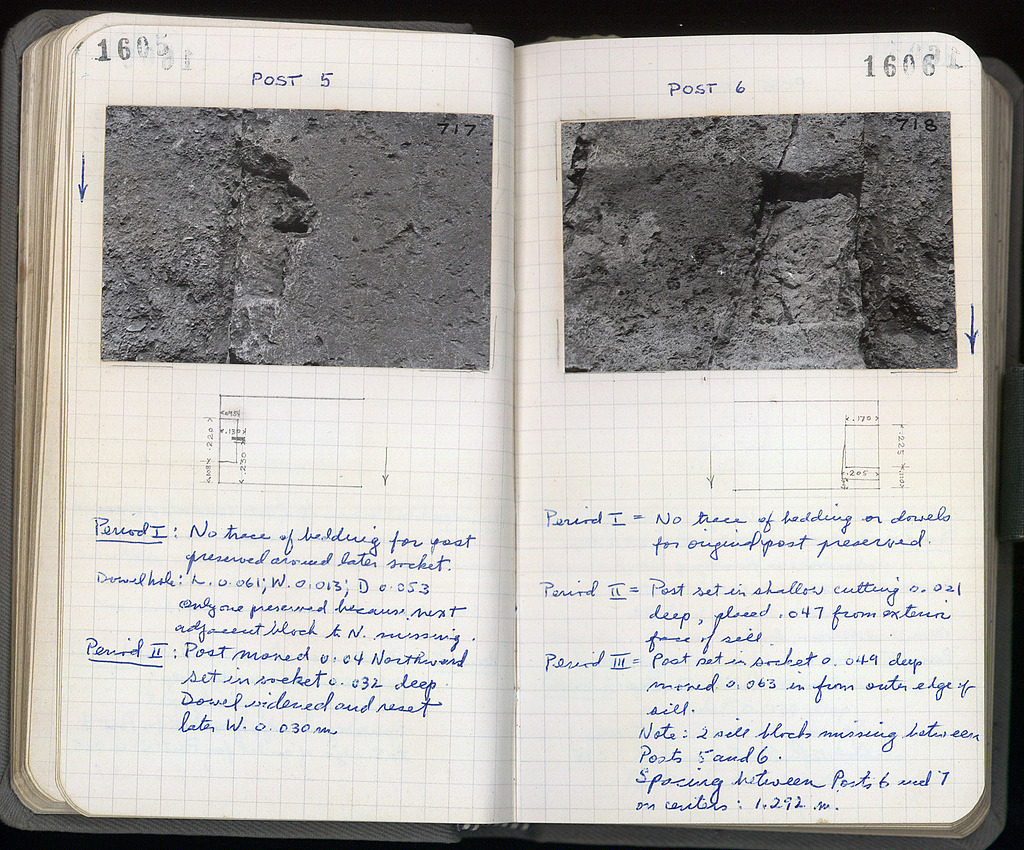 1605
POST 5
717
.045
.130
.220
.230
.008
Period I : No trace of bedding for post
preserved around later socket.
Dowel hole: L. 0.061; W. 0.013; D 0.053
only one preserved because next
adjacent block to N. missing.
Period II : Post moved 0.04 Northward
set in socket 0.032 deep.
Dowel widened and reset
later W. 0.030 m
1606
POST 6
718
.170
.225
.205
.110
Period I = No trace of bedding or dowels
for original post preserved.
Period II = Post set in shallow cutting 0.021
deep, placed .047 from exterior
face of sill.
Period III = Post set in socket 0.049 deep
moved 0.063 in from outer edge of
sill.
Note: 2 sill blocks missing between
Posts 5 and 6.
Spacing between Posts 6 and 7
on centers: 1.292 m.